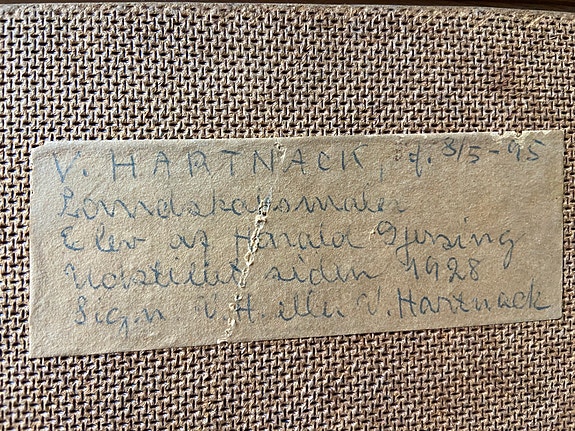 V. HARTNACK, f. 3/5-95
Landskabsmaler
Elev af Harald Gjersing
Udstillet siden 1928
Sign V.H. eller V. Hartnack